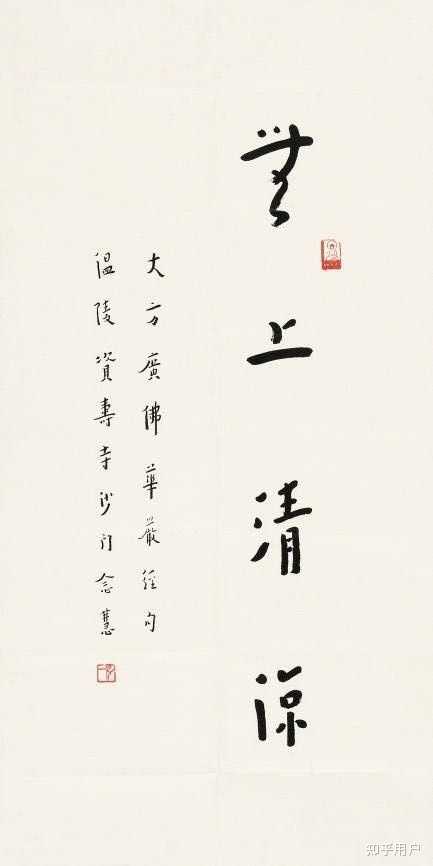 無上清涼
大方廣佛華嚴經句
温陵資壽寺沙门念慧
知乎用户